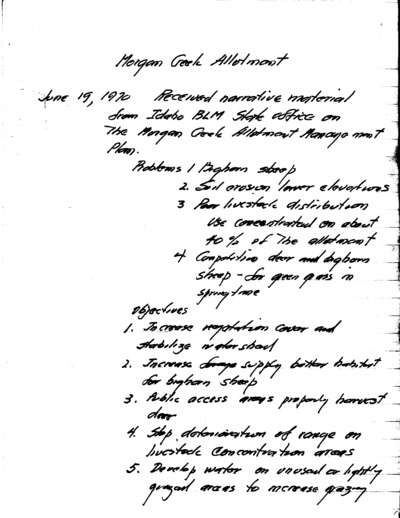 Morgan Creek Allotment
June 19, 1970 Received narrative material
from Idaho BLM State office on
The Morgan Creek Allotment Management
Plan.
Problems 1 Bighorn sheep
2. Soil erosion lower elevations
3 Poor livestock distribution
Use concentrated on about
40% of the allotment
4 Competition deer and bighorn
sheep - for green grass in
springtime
Objectives
1. Increase vegetation cover and
stabilize watershed
2. Increase forage supply better habitat
for bighorn sheep
3. Public access areas properly harvest
deer
4. Stop deterioration of range on
livestock concentration areas
5. Develop water on unused or lightly
grazed areas to increase grazing